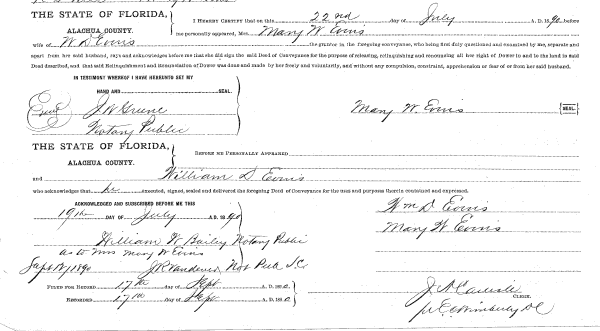 THE STATE OF FLORIDA,
ALACHUA COUNTY.
I HEREBY CERTIFY that on this 22nd day of July A. D. 1890, before
me personally appeared, Mrs. Mary W Evins
wife of W D Evins the grantor in the foregoing conveyance, who being first duly questioned and examined by me, separate and
apart from her said husband, says and acknowledges before me that she did sign the said Deed of Conveyance for the purpose of releasing, relinquishing and renouncing all her right of Dower in and to the land in said
Deed described, and that said Relinquishment and Renunciation of Dower was done and made by her freely and voluntarily, and without any compulsion, constraint, apprehension or fear of or from her said husband.
IN TESTIMONY WHEREOF I HAVE HEREUNTO SET MY
HAND AND SEAL.
J W Greene
Notary Public
Mary W. Evins SEAL.
THE STATE OF FLORIDA,
ALACHUA COUNTY.
BEFORE ME PERSONALLY APPEARED
and William D Evins
who acknowledges that he executed, signed, sealed and delivered the foregoing Deed of Conveyance for the uses and purposes therein contained and expressed.
ACKNOWLEDGED AND SUBSCRIBED BEFORE ME THIS
19th DAY OF July A. D. 1890
Wm D Evins
Mary W Evins
William W Bailey Notary Public
as to Mrs Mary W Evins
1890 J R Vandiver Not Pub S C
FILED FOR RECORD 17th day of Sept A. D. 1890
RECORDED 17th day of Sept A. D. 1890
J A Carlisle CLERK.
pr Wimberly D C